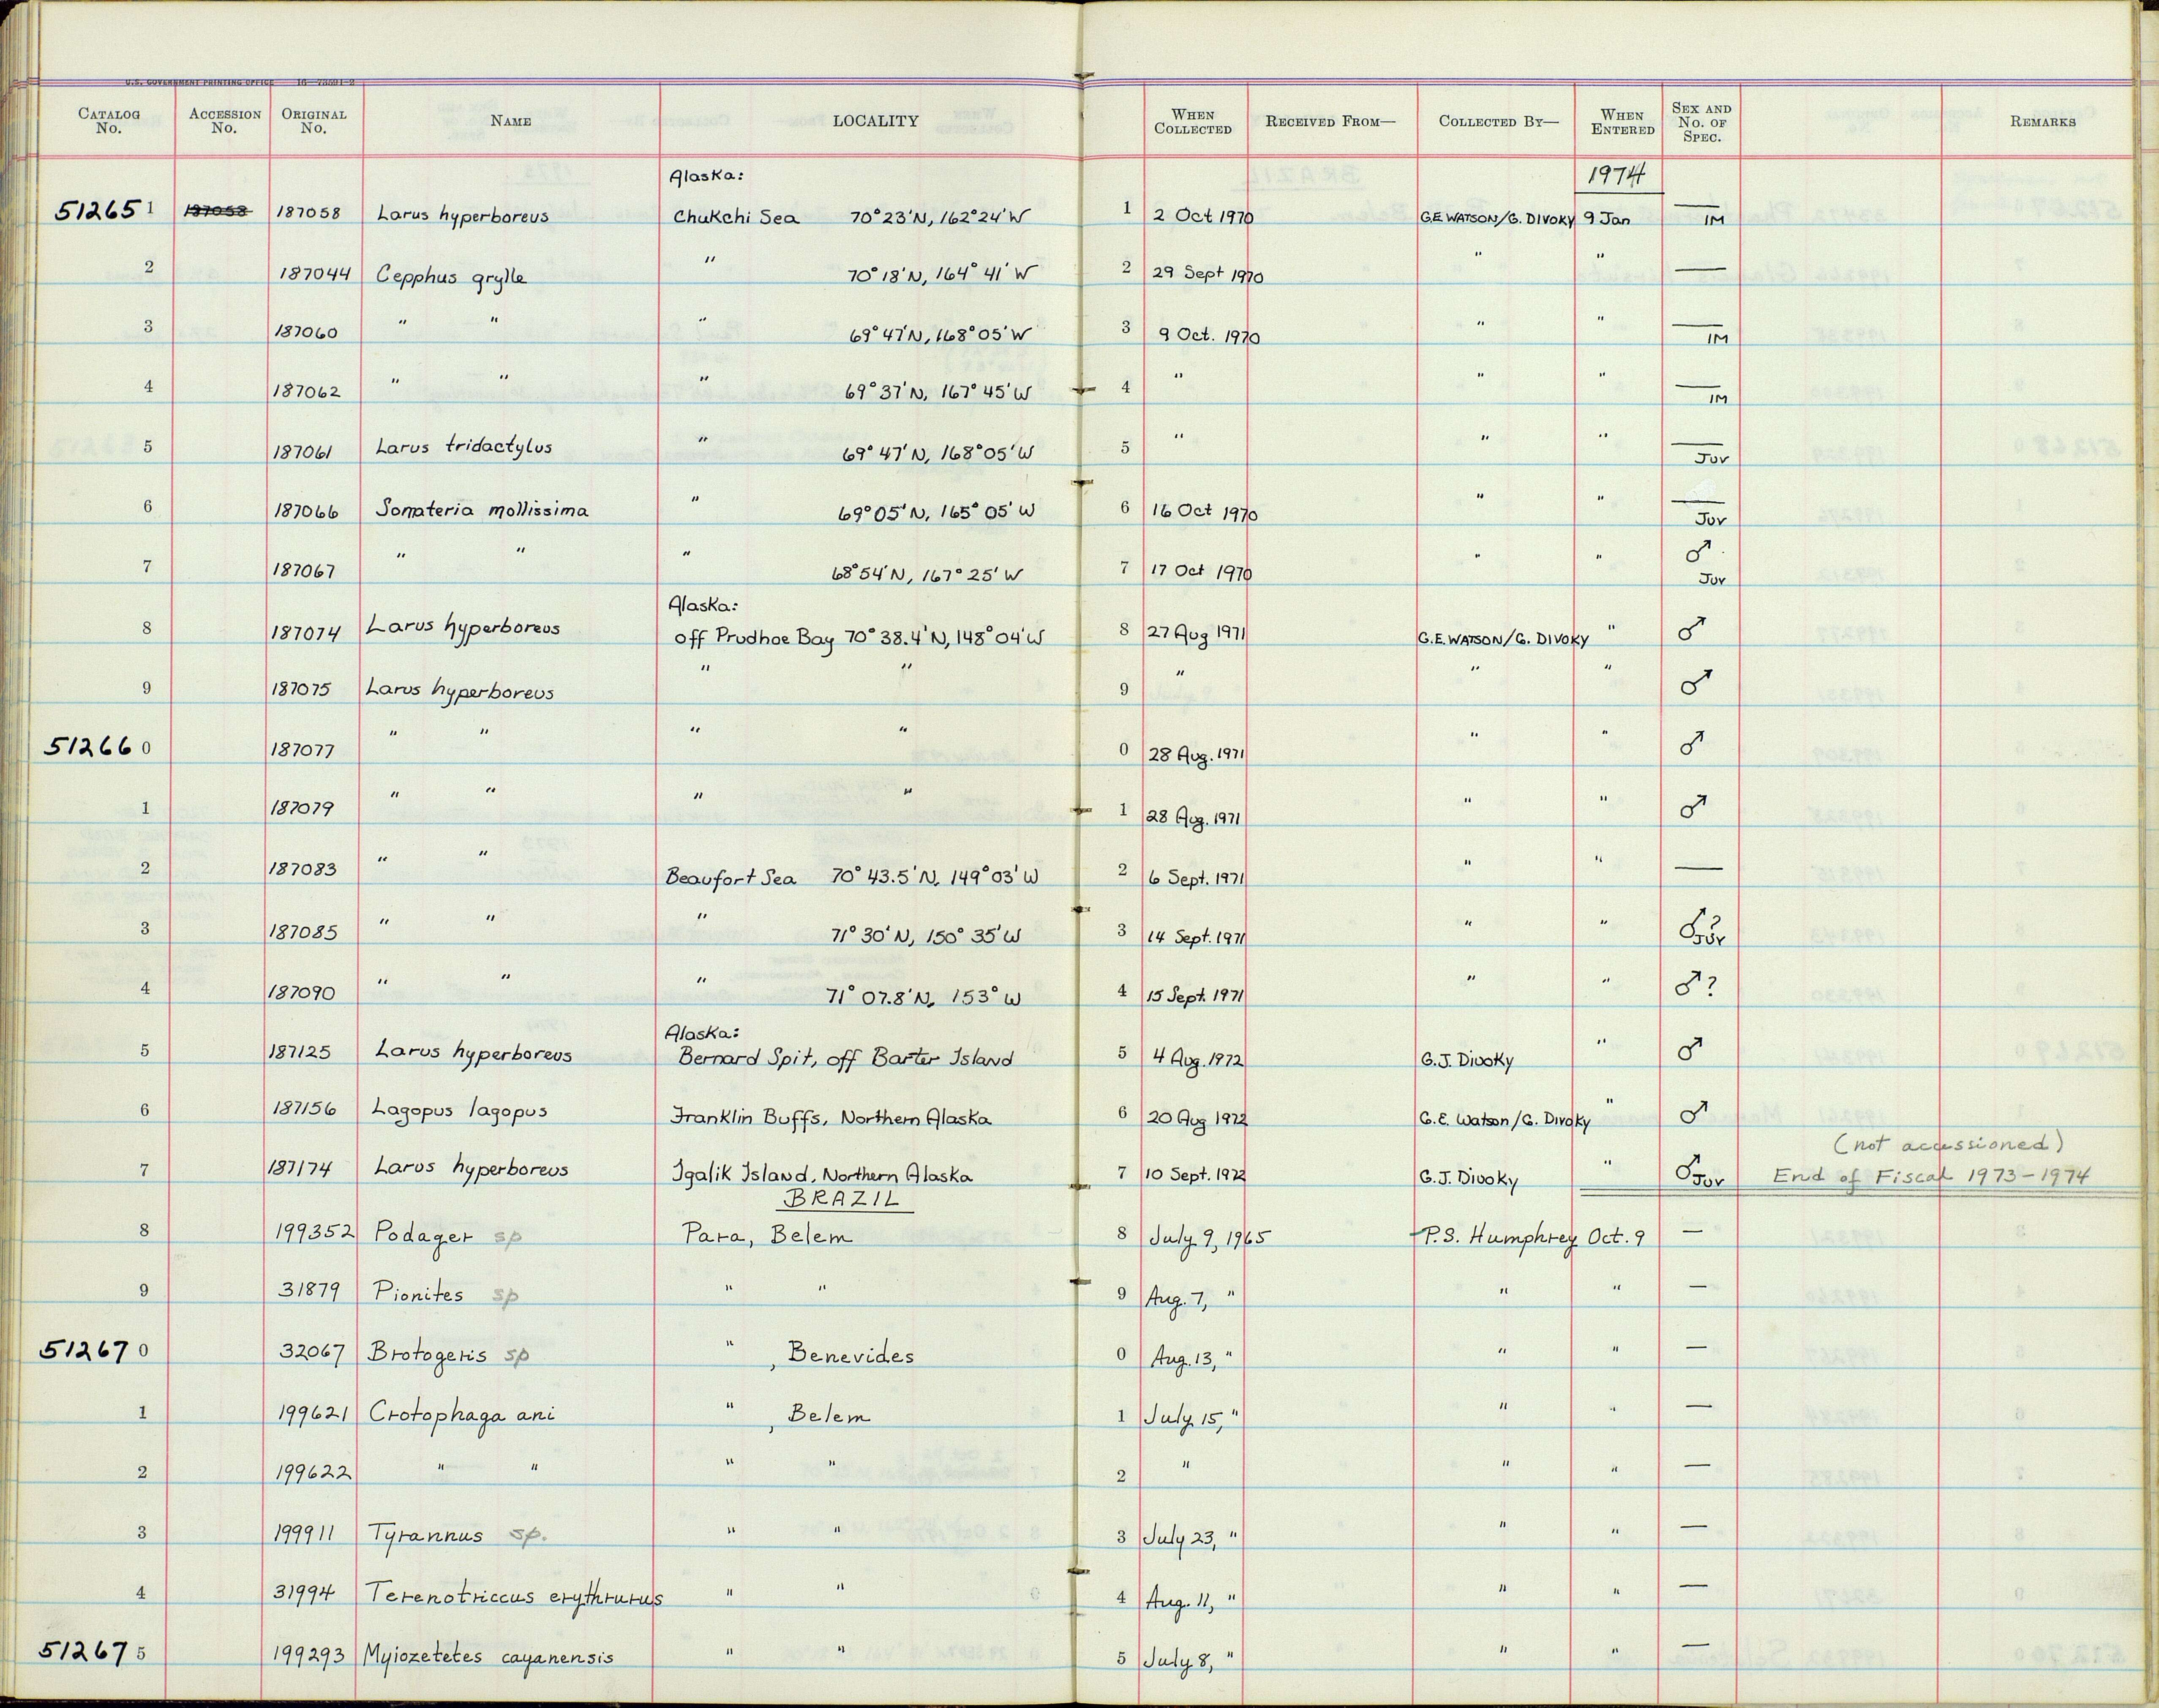 U.S. GOVERNMENT PRINTING OFFICE 16—73501-2
CATALOG No. ACCESSION No. ORIGINAL No. NAME LOCALITY WHEN COLLECTED RECEIVED FROM— COLLECTED BY— WHEN ENTERED SEX AND No. OF SPEC. REMARKS
Alaska: 1974
51265 1 187058 187058 Larus hyperboreus Chukchi Sea 70°23'N, 162°24'W 1 2 Oct 1970 G.E. WATSON/G. DIVOKY 9 Jan — IM
2 187044 Cepphus grylle " 70°18'N, 164°41'W 2 29 Sept 1970 " " —
3 187060 " " " 69°47'N, 168°05'W 3 9 Oct. 1970 " " — IM
4 187062 " " " 69°37'N, 167°45'W 4 " " " — IM
5 187061 Larus tridactylus " 69°47'N, 168°05'W 5 " " " — Juv
6 187066 Somateria mollissima " 69°05'N, 165°05'W 6 16 Oct 1970 " " — Juv
7 187067 " " " 68°54'N, 167°25'W 7 17 Oct 1970 " " ♂ Juv
Alaska:
8 187074 Larus hyperboreus off Prudhoe Bay 70°38.4'N, 148°04'W 8 27 Aug 1971 G.E. WATSON/G. DIVOKY " ♂
9 187075 Larus hyperboreus " " 9 " " " ♂
51266 0 187077 " " " " 0 28 Aug. 1971 " " ♂
1 187079 " " " " 1 28 Aug. 1971 " " ♂
2 187083 " " Beaufort Sea 70°43.5'N, 149°03'W 2 6 Sept. 1971 " " —
3 187085 " " " 71°30'N, 150°35'W 3 14 Sept. 1971 " " ♂? Juv
4 187090 " " " 71°07.8'N, 153°W 4 15 Sept. 1971 " " ♂?
Alaska:
5 187125 Larus hyperboreus Bernard Spit, off Barter Island 5 4 Aug. 1972 G.J. Divoky " ♂
6 187156 Lagopus lagopus Franklin Buffs, Northern Alaska 6 20 Aug 1972 G.E. Watson/G. Divoky " ♂
(not accessioned)
7 187174 Larus hyperboreus Igalik Island, Northern Alaska 7 10 Sept. 1972 G.J. Divoky " ♂ Juv End of Fiscal 1973-1974
BRAZIL
8 199352 Podager sp Para, Belem 8 July 9, 1965 P.S. Humphrey Oct. 9 —
9 31879 Pionites sp " " 9 Aug. 7, " " " —
51267 0 32067 Brotogeris sp " , Benevides 0 Aug. 13, " " " —
1 199621 Crotophaga ani " , Belem 1 July 15, " " " —
2 199622 " " " " 2 " " " —
3 199911 Tyrannus sp. " " 3 July 23, " " " —
4 31994 Terenotriccus erythrurus " " 4 Aug. 11, " " " —
51267 5 199293 Myiozetetes cayanensis " " 5 July 8, " " " —